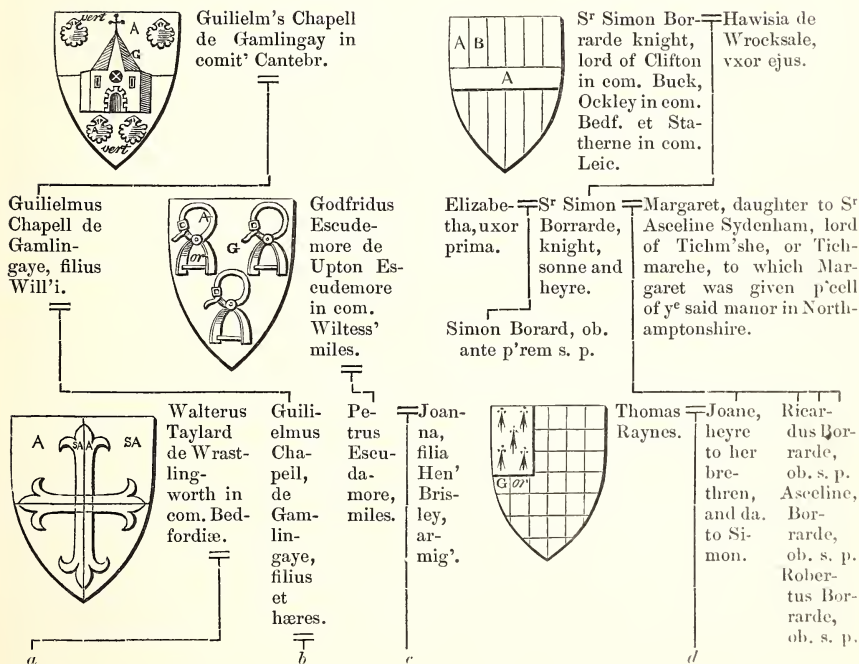 vert
A
G
A
vert
Guilielm's Chapell
de Gamlingay in
comit' Cantebr.
A B
A
Sʳ Simon Bor-
rarde knight,
lord of Clifton
in com. Buck,
Ockley in com.
Bedf. et Sta-
therne in com.
Leic.
Hawisia de
Wrocksale,
vxor ejus.
Guilielmus
Chapell de
Gamlin-
gaye, filius
Will'i.
A
or
G
Godfridus
Escude-
more de
Upton Es-
cudemore
in com.
Wiltess'
miles.
Elizabe-
tha, uxor
prima.
Sʳ Simon
Borrarde,
knight,
sonne and
heyre.
Margaret, daughter to Sʳ
Asceline Sydenham, lord
of Tichm'she, or Tich-
marche, to which Mar-
garet was given p'cell
of yᵉ said manor in North-
amptonshire.
Simon Borard, ob.
ante p'rem s. p.
A SA A SA
Walterus
Taylard
de Wrast-
ling-
worth in
com. Bed-
fordiæ.
Guili-
elmus
Cha-
pell,
de
Gam-
lin-
gaye,
filius
et
hæres.
Pe-
trus
Escu-
da-
more,
miles.
Joan-
na,
filia
Hen'
Bris-
ley,
ar-
mig'.
G or
Thomas
Raynes.
Joane,
heyre
to her
bre-
thren,
and da.
to Si-
mon.
Ricar-
dus Bor-
rarde,
ob. s. p.
Asceline,
Bor-
rarde,
ob. s. p.
Rober-
tus Bor-
rarde,
ob. s. p.
a b c d